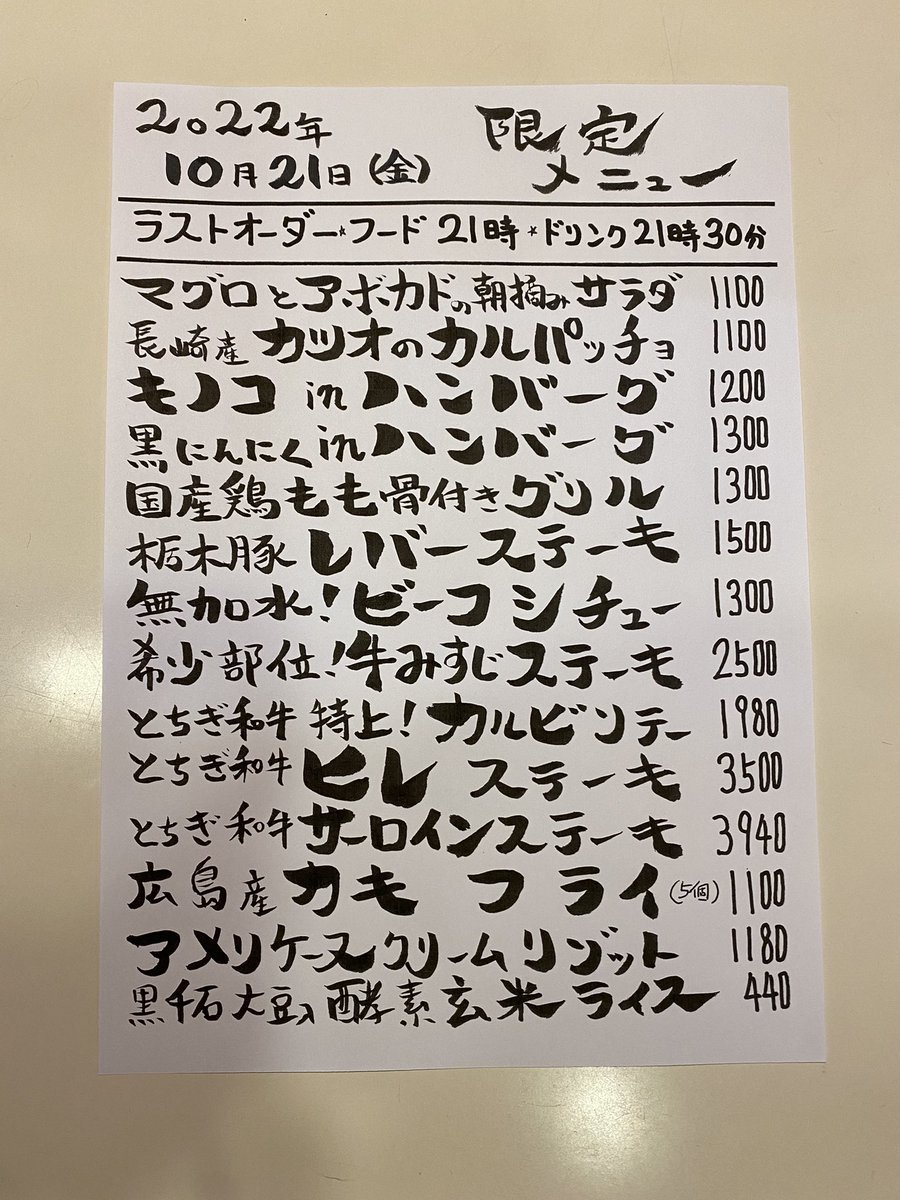 2022年 限定
10月21日(金) メニュー
ラストオーダー*フード 21時 *ドリンク21時30分
マグロとアボカドの朝摘みサラダ 1100
長崎産カツオのカルパッチョ 1100
キノコinハンバーグ 1200
黒にんにくinハンバーグ 1300
国産鶏もも骨付きグリル 1300
栃木豚レバーステーキ 1500
無加水!ビーフシチュー 1300
希少部位!牛みすじステーキ 2500
とちぎ和牛特上!カルビソテー 1980
とちぎ和牛ヒレステーキ 3500
とちぎ和牛サーロインステーキ 3940
広島産カキフライ(5個) 1100
アメリケーヌクリームリゾット 1180
黒千石大豆入酵素玄米ライス 440